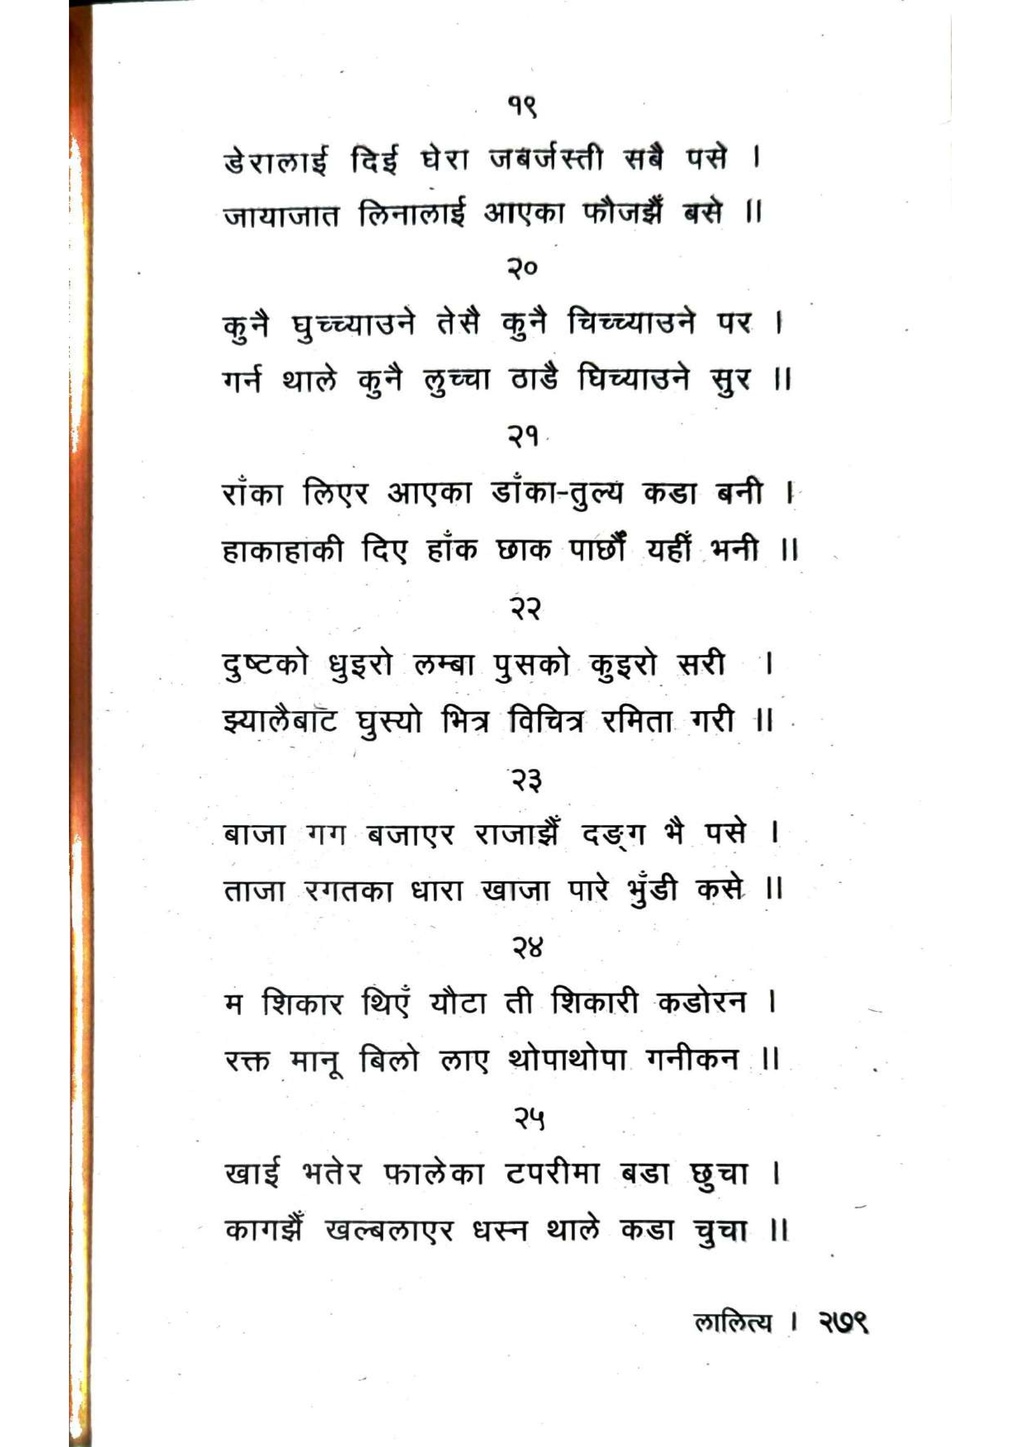 १९
डेरालाई दिई घेरा जबर्जस्ती सबै पसे ।
जायाजात लिनालाई आएका फौजझैँ बसे ॥
२०
कुनै घुच्च्याउने तेसै कुनै चिच्च्याउने पर ।
गर्न थाले कुनै लुच्चा ठाडै घिच्याउने सुर ॥
२१
राँका लिएर आएका डाँका-तुल्य कडा बनी ।
हाकाहाकी दिए हाँक छाक पार्छौँ यहीँ भनी ॥
२२
दुष्टको धुइरो लम्बा पुसको कुइरो सरी ।
झ्यालैबाट घुस्यो भित्र विचित्र रमिता गरी ॥
२३
बाजा गग बजाएर राजाझैँ दङ्ग भै पसे ।
ताजा रगतका धारा खाजा पारे भुँडी कसे ॥
२४
म शिकार थिएँ यौटा ती शिकारी कडोरन ।
रक्त मानू बिलो लाए थोपाथोपा गनीकन ॥
२५
खाई भतेर फालेका टपरीमा बडा छुचा ।
कागझैँ खल्बलाएर धस्न थाले कडा चुचा ॥
लालित्य । २७९